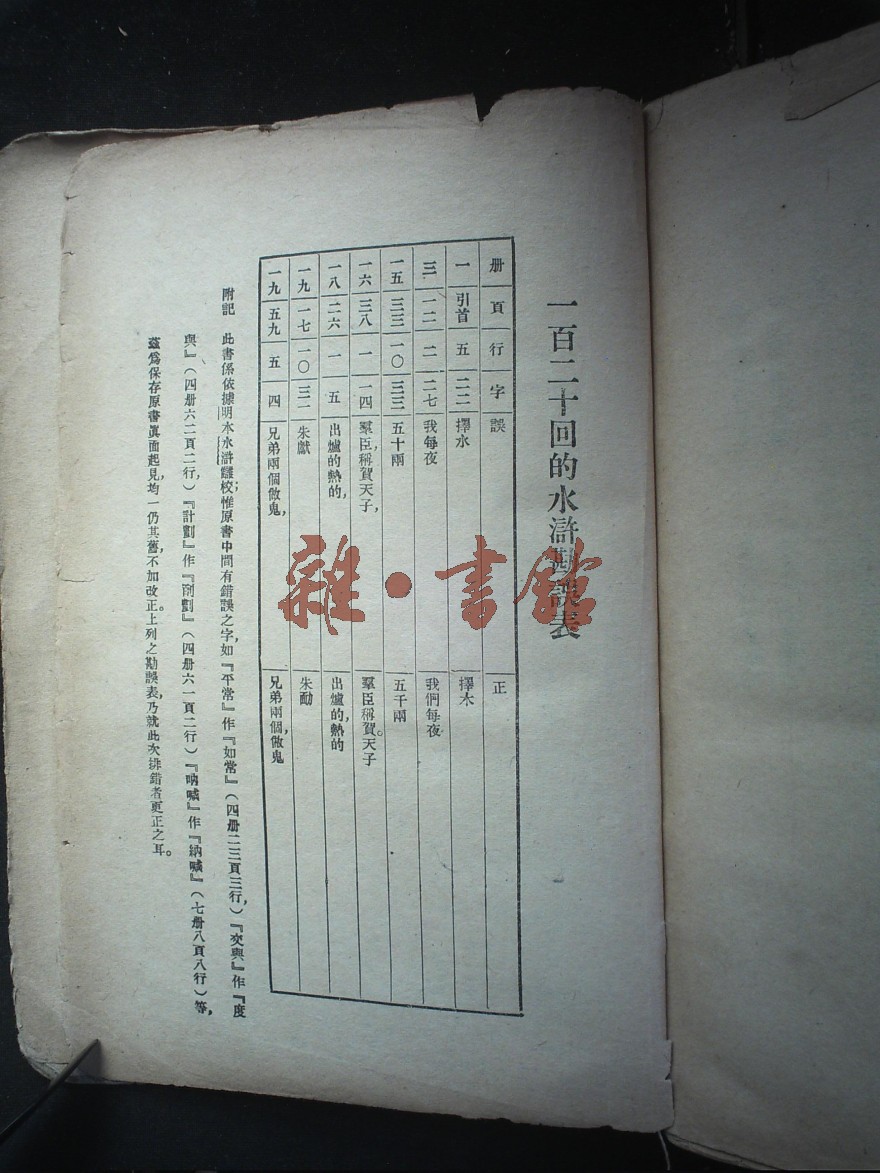 一百二十回的水滸勘誤表
册 頁 行 字 誤 正
一 引首 五 二二 擇水 擇木
三 一二 二 二七 我每夜 我們每夜
一五 三三 一〇 三三 五十兩 五千兩
一六 三八 一 一四 羣臣，稱賀天子， 羣臣稱賀。天子
一八 二六 一 五 出爐的熱的， 出爐的，熱的
一九 一七 一〇 三一 朱獻 朱勔
一九 五九 五 四 兄弟兩個做鬼， 兄弟兩個，做鬼
附記 此書係依據明本水滸讎校；惟原書中間有錯誤之字，如『平常』作『如常』（四册二三頁三行，）『交與』作『度
與』（四册六二頁二行，）『計劃』作『剮劃』（四册六一頁二行）『吶喊』作『納喊』（七册八頁八行）等，
茲爲保存原書眞面起見，均一仍其舊，不加改正。上列之勘誤表，乃就此次排錯者更正之耳。
雜·書館